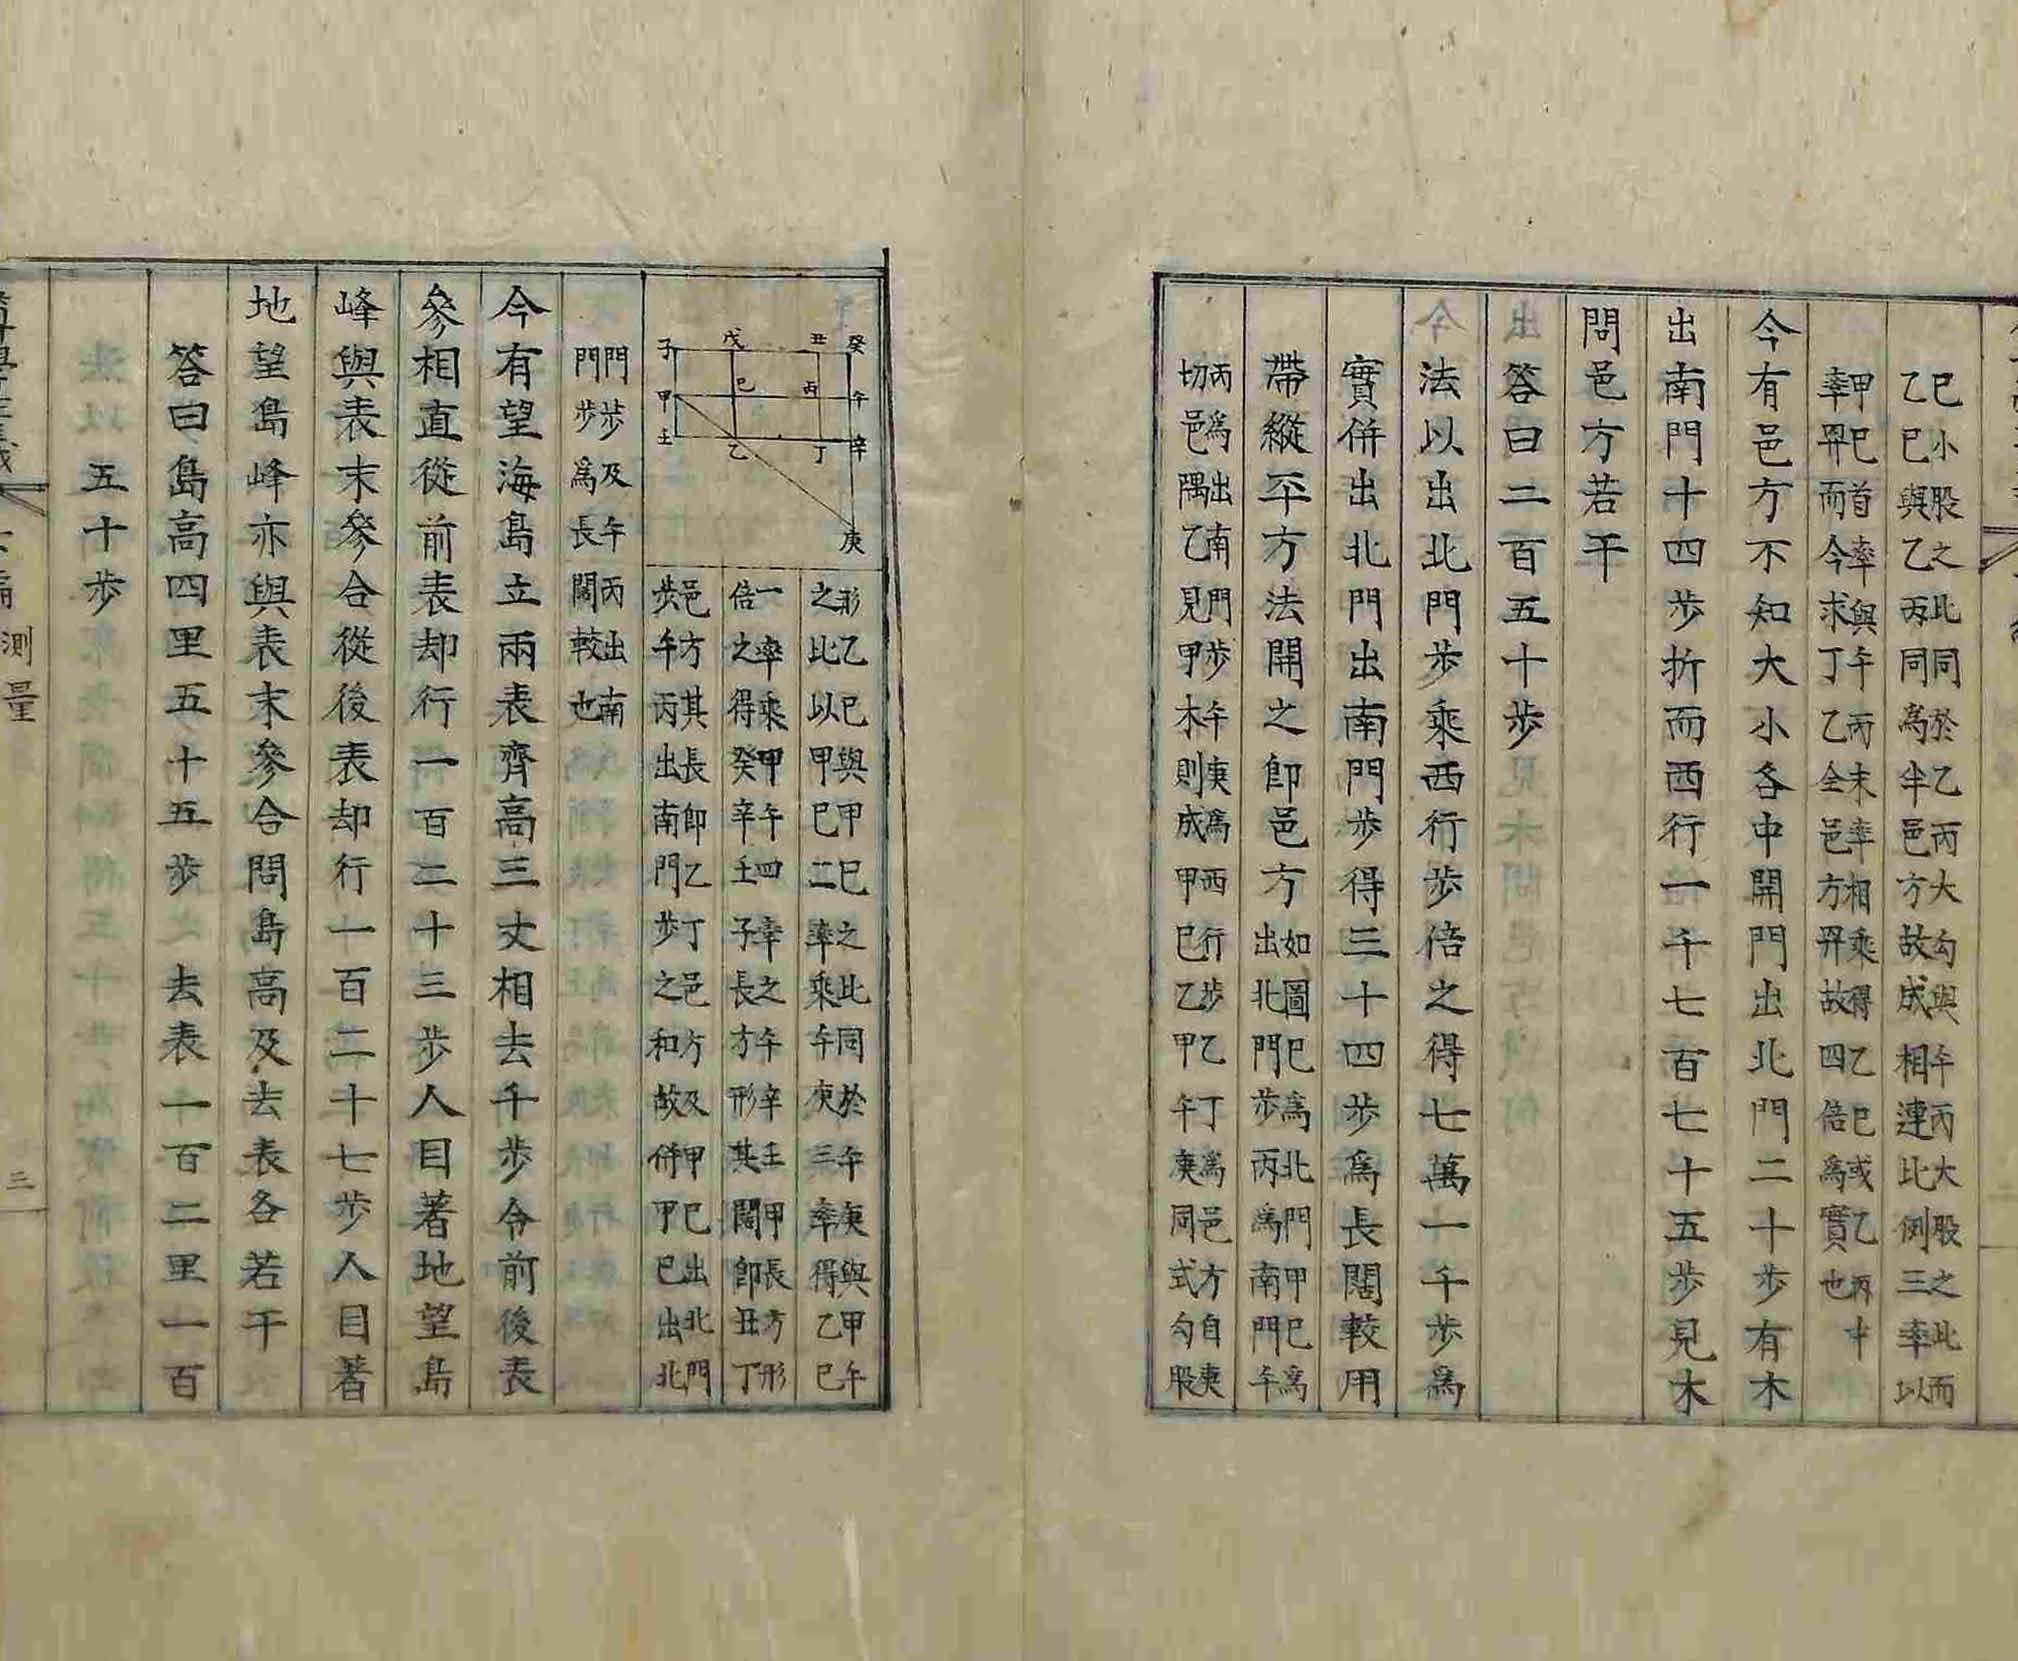 巳小股之比同於乙丙大勾與午丙大股之比而
乙巳與乙丙同爲半邑方故成相連比例三率以
甲巳首率與午丙末率相乘得乙巳或乙丙中
率冪而今求丁乙全邑方冪故四倍爲實也
今有邑方不知大小各中開門出北門二十步有木
出南門十四步折而西行一千七百七十五步見木
問邑方若干
答曰二百五十步
法以出北門步乘西行步倍之得七萬一千步爲
實併出北門出南門步得三十四步爲長闊較用
帶縱平方法開之卽邑方如圖巳爲北門甲巳爲
出北門步丙爲南門午
丙爲出南門步午庚爲西行步乙丁爲邑方自庚
切邑隅乙見甲木則成甲巳乙甲午庚同式勾股
癸 丑 戊 子
午 丙 巳 甲
辛 丁 乙 壬
庚
形乙巳與甲巳之比同於午庚與甲午
之比以甲巳二率乘午庚三率得乙巳
一率乘甲午四率之午辛壬甲長方形
倍之得癸辛壬子長方形其闊卽丑丁
邑方其長卽乙丁邑方及甲巳出北門
步午丙出南門步之和故併甲巳出北
門步及午丙出南
門步爲長闊較也
今有望海島立兩表齊高三丈相去千步令前後表
參相直從前表却行一百二十三步人目著地望島
峰與表末參合從後表却行一百二十七步人目著
地望島峰亦與表末參合問島高及去表各若干
答曰島高四里五十五步 去表一百二里一百
五十步
測量
三